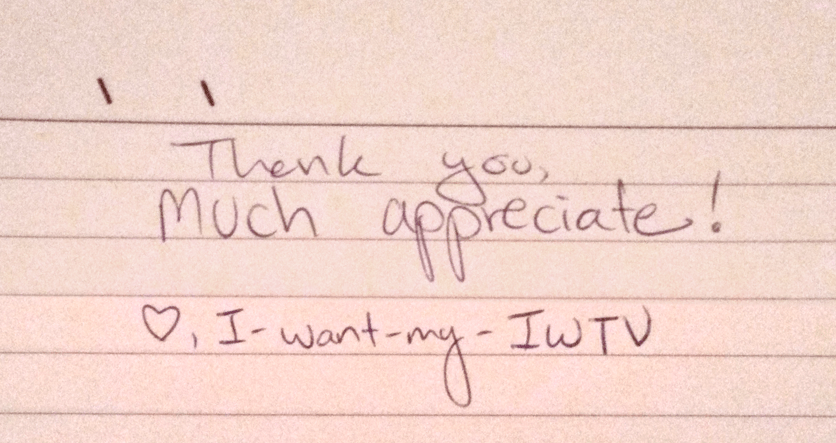 Thenk you,
Much appreciate!
♡, I-want-my-IWTV